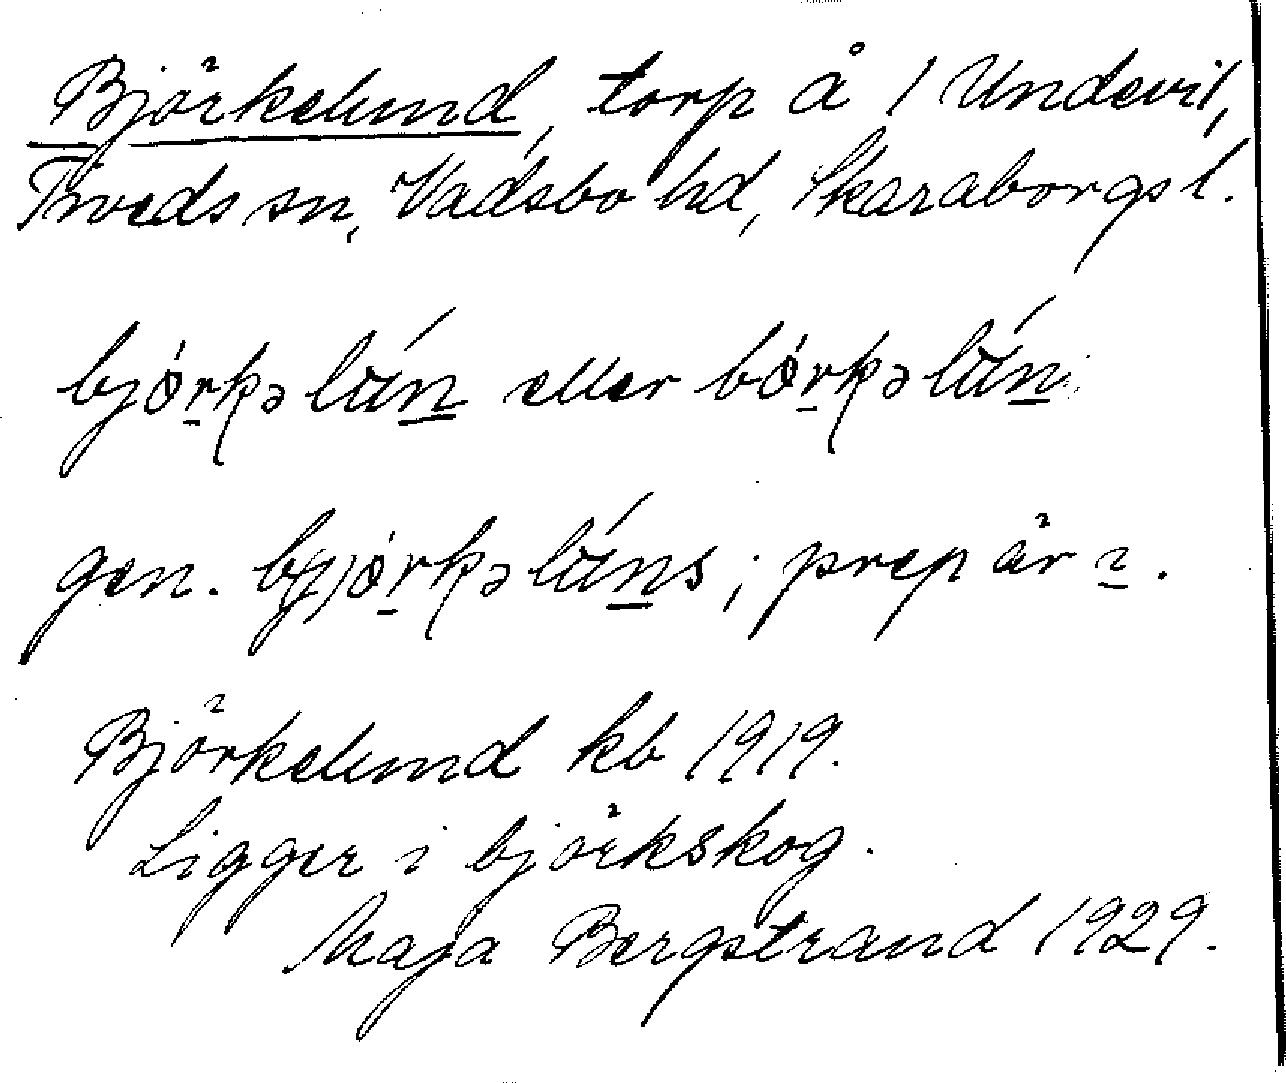 Björkelund, torp å 1 Undevil,
Tiveds sn, Vadsbo hd, Skaraborgs l.
bjǿrkə lún eller bǿrkə lún
gen. bjǿrkə lúns; prep är i.
Björkelund kb 1919.
Ligger i björkskog.
Maja Bergstrand 1929.